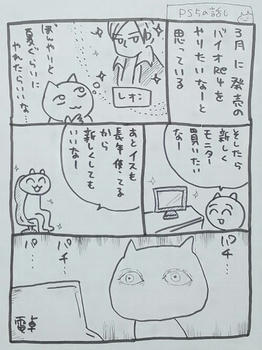 PS5の話し
3月に発売の
バイオRe4を
やりたいなーと
思っている
レオン
ぼんやりと
夏ぐらいに
やれたらいいな。
そしたら
新しく
モニター
買いたい
なー
あとイスも
長年使ってる
から
新しくしても
いいなー
パチ…
パチ…
パ…
電卓